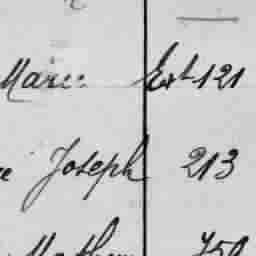 Marie Ext 121
Joseph 213
750